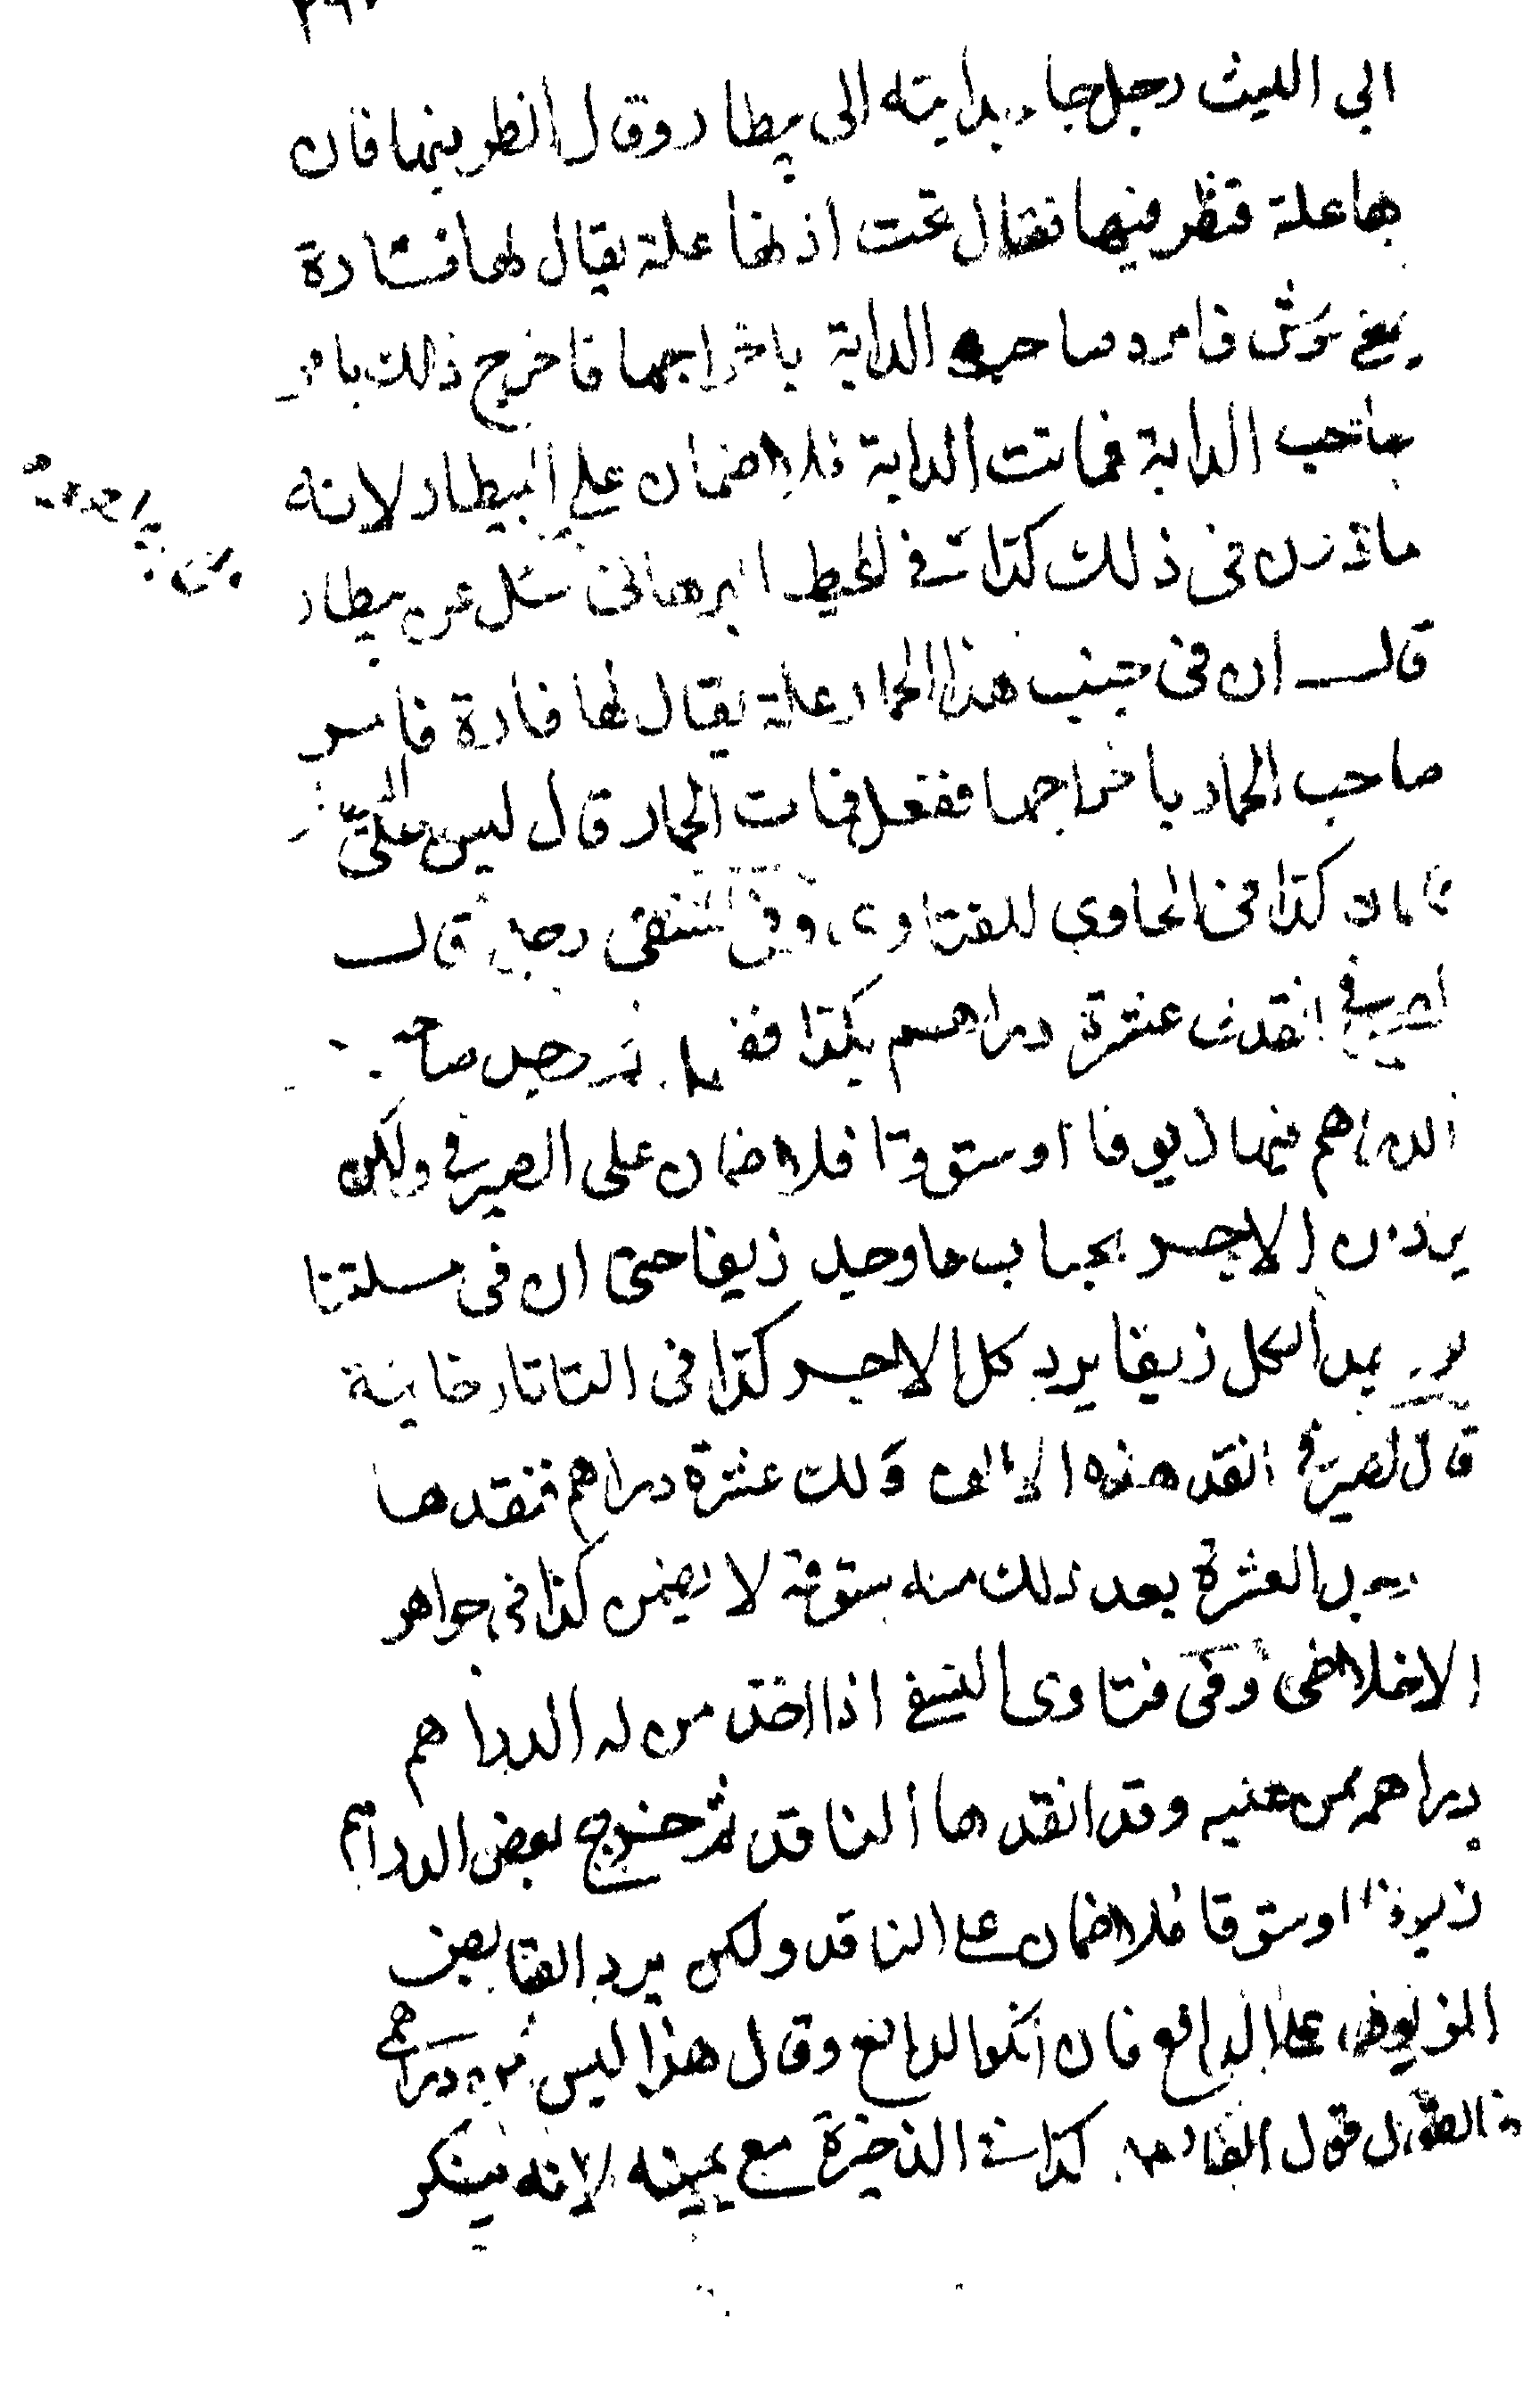 ابى الليث رجل جاء بدابته الى بيطار وقال انظر فيها فان
بها علة فنظر فيها فقال تحت اذنها علة يقال لها فشارة
فامره صاحب الدابة باخراجها فاخرج ذلك بامر
صاحب الدابة فماتت الدابة فلا ضمان على البيطار لانه
ماذون فى ذلك كذا فے المحيط البرهانى سئل عن بيطار
قال ان فى جنب هذا الحمار علة يقال لها فارة فامر
صاحب الحمار باخراجها ففعل فمات الحمار قال ليس على
ضمان كذا فى الحاوى للفتاوى وفى المنتقى رجل قال
لصيرفے انقدت عشرة دراهم بكذا وجد صاحب
الدراهم فيها زيوفا او ستوقا فلا ضمان على الصيرفے ولكن
يردمن الاجر بحساب ما وجد زيفا حتى ان فى مسئلتنا
لو وجد الكل زيفا يرد كل الاجر كذا فى التاتارخانية
قال لصيرفے انقد هذه الالف ولك عشرة دراهم فنقدها
وجد العشرة بعد ذلك منه ستوقة لا يضمن كذا فى جواهر
الاخلاطى وفى فتاوى النسفے اذا اخذ من له الدراهم
دراهمه ممن عليه وقد انقدها الناقد ثم خرج بعض الدراهم
زيوفا او ستوقا فلا ضمان على الناقد ولكن يرد القابض
الزيوف على الدافع فان انكر الدافع وقال هذا ليس من دراهمى
فالقول قول القابض كذا فے الذخيرة مع يمينه لانه ينكر